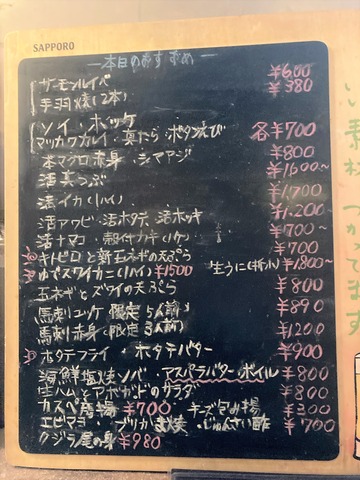 SAPPORO
―本日のおすすめ―
サーモンルイベ ¥600
手羽焼(2本) ¥380
ソイ・ホッケ
マツカワカレイ・真だら・ボタンえび 各¥700
本マグロ赤身・シマアジ ¥800
活真つぶ ¥1600～
活イカ(1ハイ) ¥1700
活アワビ・活ホタテ・活ホッキ ¥1,200
活ナマコ・殻付カキ(1ケ) ¥700～
キトピロと新玉ネギの天ぷら ¥700
ゆでズワイカニ(1ハイ)¥1500 生うに(折)¥1,800～
玉ネギとズワイの天ぷら ¥800
馬刺ユッケ(限定5人前) ¥890
馬刺赤身(限定3人前) ¥1200
ホタテフライ・ホタテバター ¥900
海鮮塩焼ソバ・アスパラバター・ボイル ¥800
生ハムとアボカドのサラダ ¥800
カスベ唐揚 ¥700 チーズ包み揚 ¥300
エビマヨ・ブリカマ焼・じゅんさい酢 ¥700
クジラ尾の身 ¥980